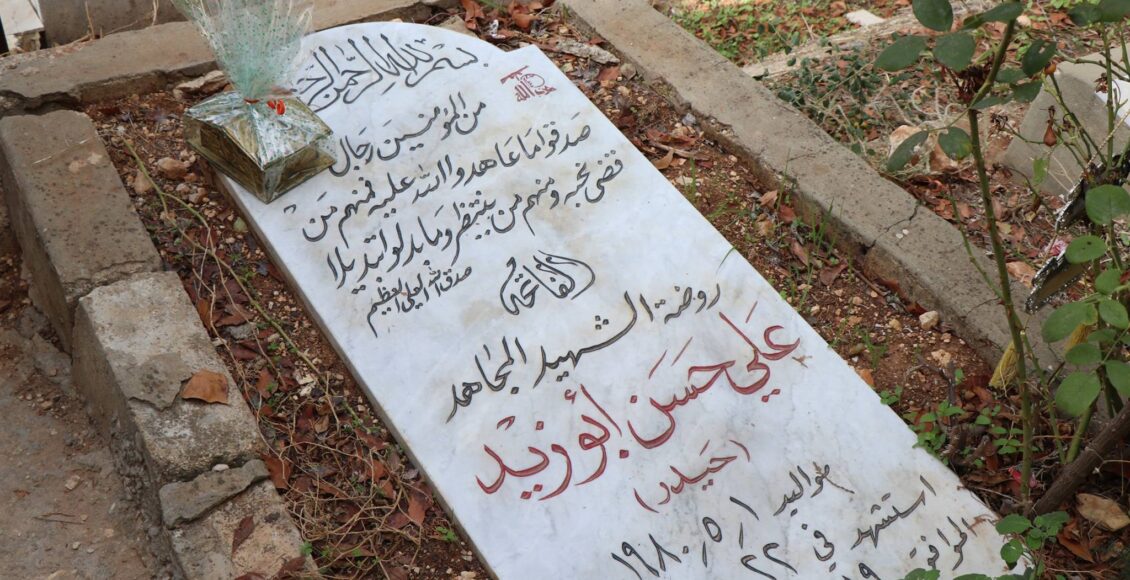 بسم الله الرحمن الرحيم
من المؤمنين رجال
صدقوا ما عاهدوا الله عليه فمنهم من
قضى نحبه ومنهم من ينتظر وما بدلوا تبديلا
صدق الله العلي العظيم
الفاتحة
روضة الشهيد المجاهد
علي حسن أبو زيد
(حيدر)
مواليد ١ ٥ ١٩٨٠
استشهد في ٢٢
الموافق